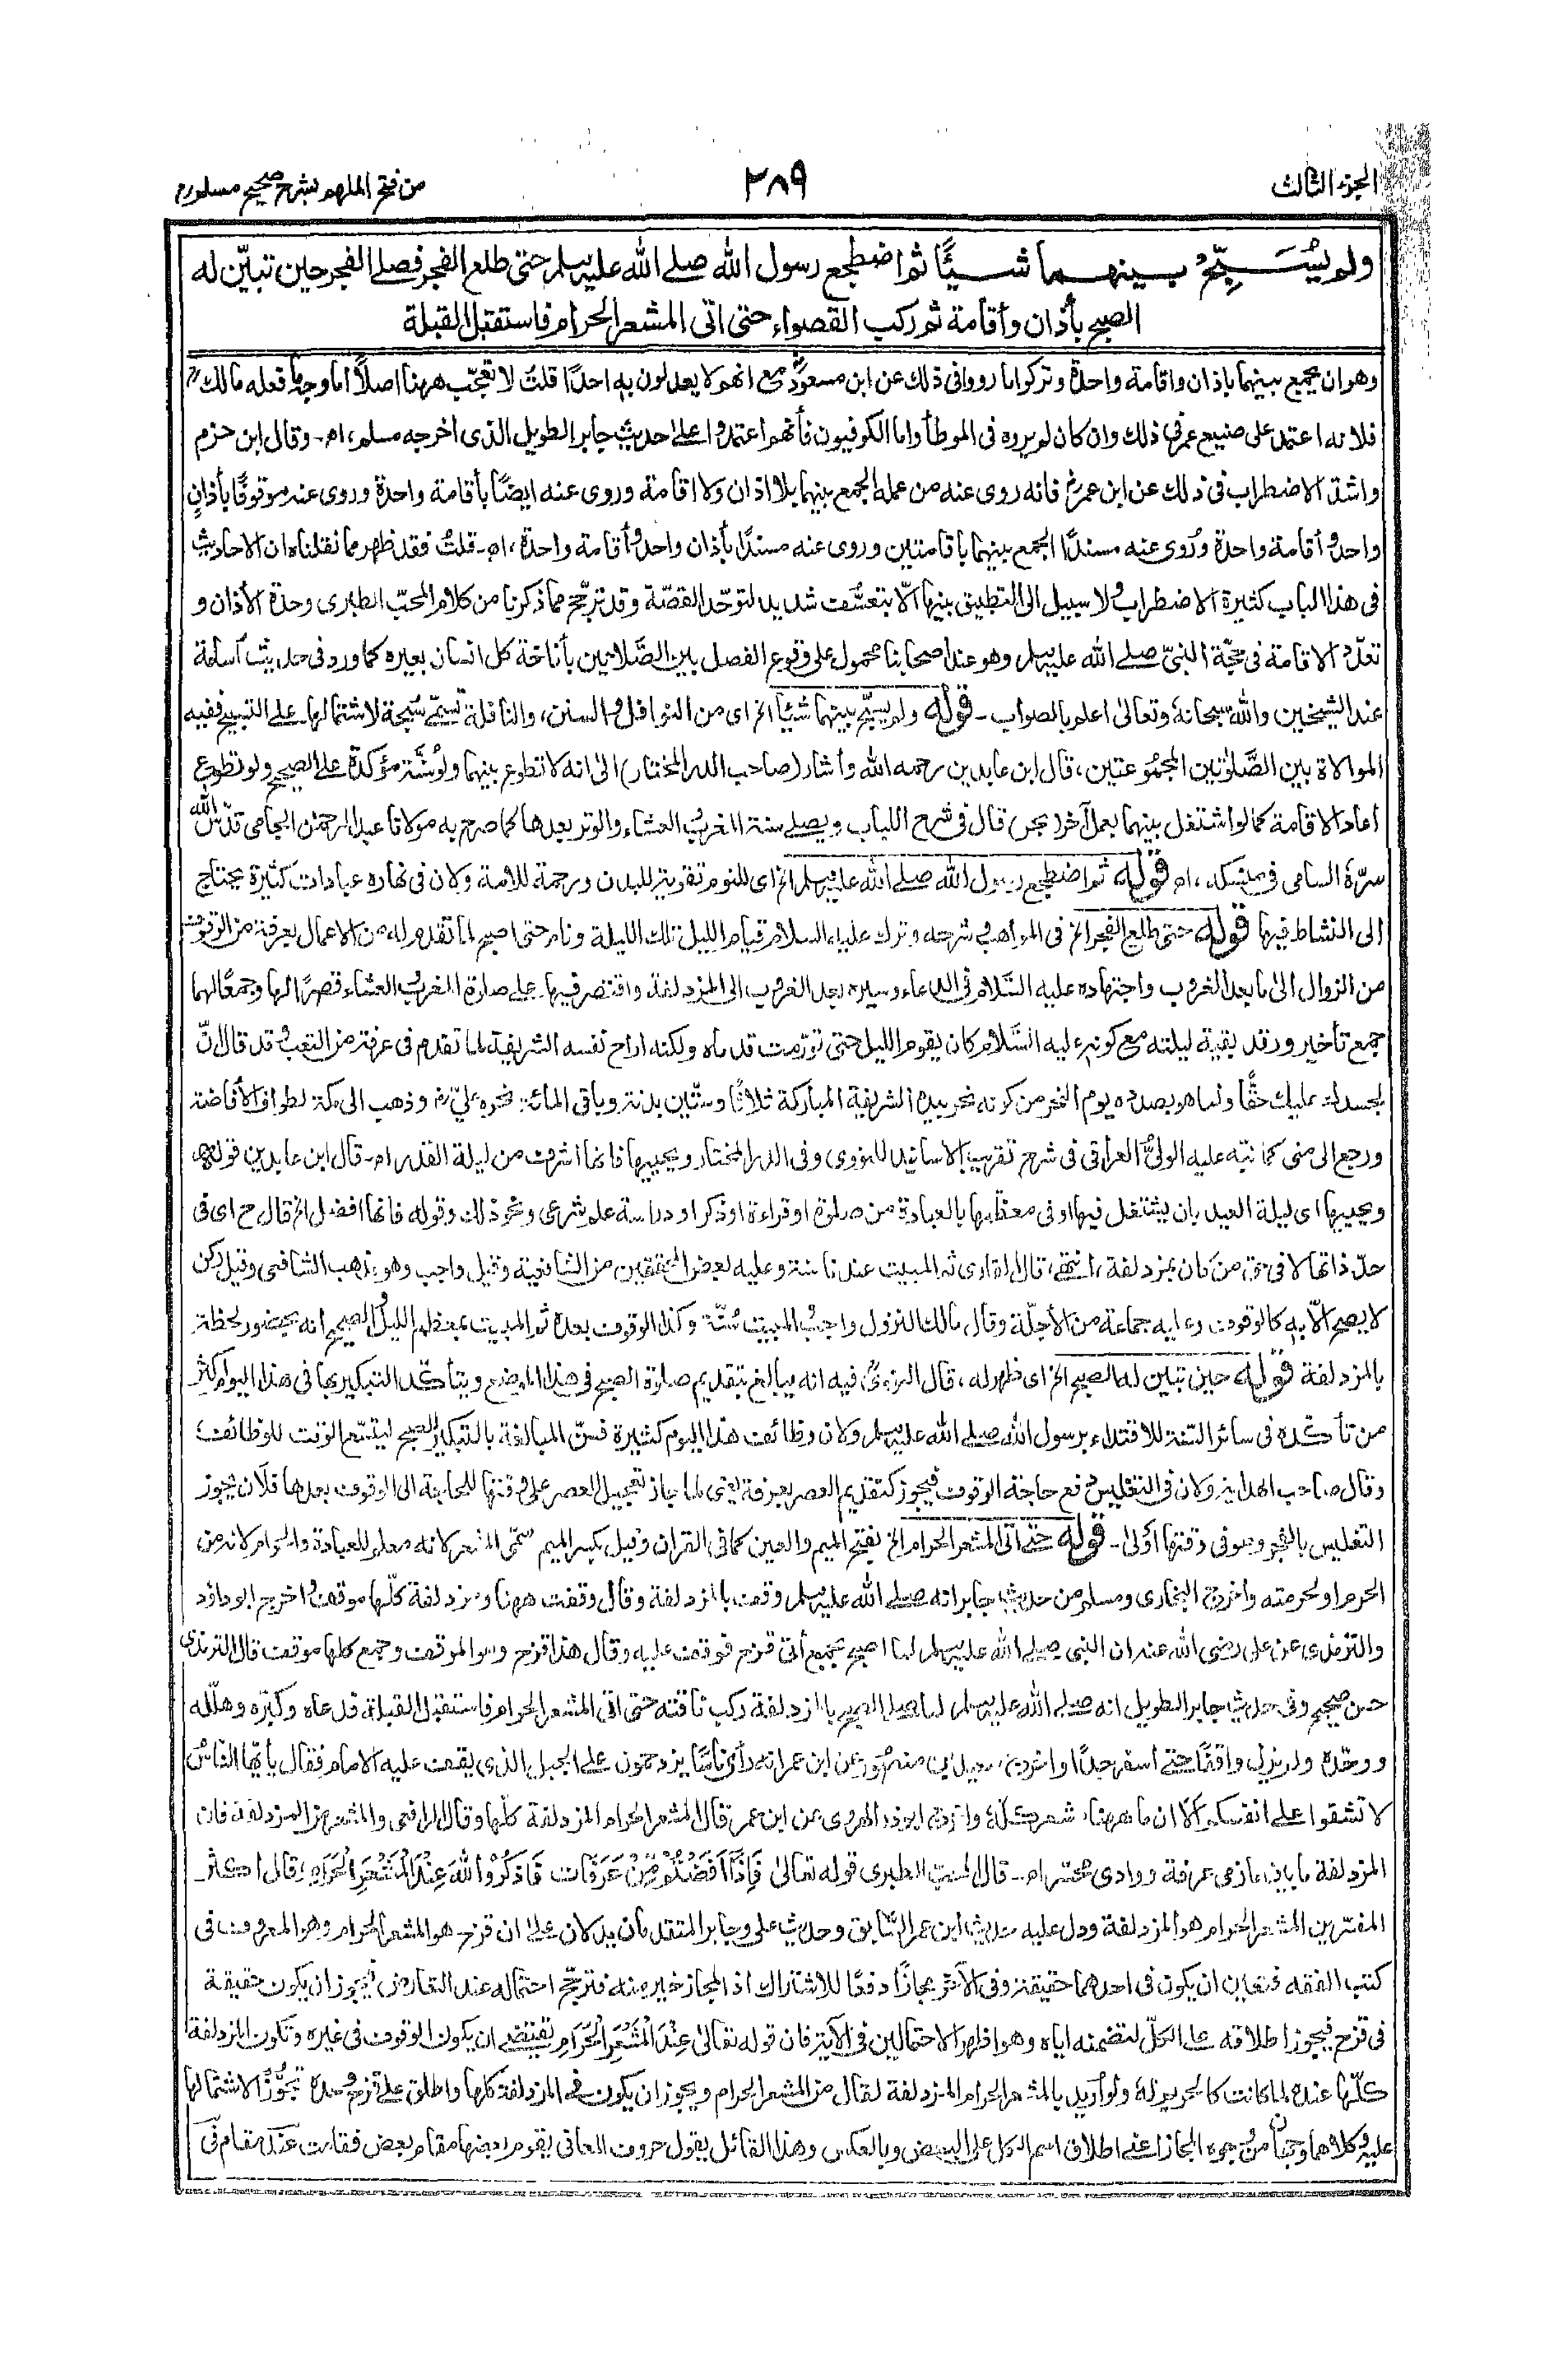 الجزء الثالث
٢٨٩
من فتح الملهم بشرح صحيح مسلم
ولم يُسَبِّحْ بينهما شيئًا ثم اضطجع رسول الله صلى الله عليه وسلم حتى طلع الفجر فصلى الفجر حين تبيّن له
الصبح بأذان وأقامة ثم ركب القصواء حتى اتى المشعر الحرام فاستقبل القبلة
وهو ان يجمع بينهما باذان واقامة واحدة وتركوا ما رووا فى ذلك عن ابن مسعود مع انهم لا يعدلون به احدًا قلت لا تعجّب ههنا اصلًا اما وجه ما فعله مالك
فلانه اعتمد على صنيع عمر فى ذلك وان كان لم يروه فى الموطأ واما الكوفيون فأنهم اعتمدوا على حديث جابر الطويل الذى اخرجه مسلم، اه- وقال ابن حزم
واشد الاضطراب فى ذلك عن ابن عمر فانه روى عنه من عمله الجمع بينهما بلا اذان ولا اقامة وروى عنه ايضًا بأقامة واحدة وروى عنه موقوفًا بأذانٍ
واحد وأقامة واحدة ورُوى عنه مسندًا الجمع بينهما باقامتين وروى عنه مسندًا بأذان واحد وأقامة واحدة، اه- قلتُ فقد ظهر مما نقلناه ان الاحاديث
فى هذا الباب كثيرة الاضطراب ولا سبيل الى التطبيق بينها الّا بتعسّف شديد لتوحّد القصّة وقد ترجّح مما ذكرنا من كلام المحبّ الطبرى وحدة الأذان و
تعدّد الاقامة فى حجّة النبىّ صلى الله عليه وسلم وهو عند اصحابنا محمول على وقوع الفصل بين الصّلاتين بأناخة كل انسان بعيره كما ورد فى حديث أسامة
عند الشيخين والله سبحانهٗ وتعالىٰ اعلم بالصواب - قوله ولم يسبّح بينهما شيئًا الخ اى من النوافل والسنن، والنافلة تسمّى سُبحة لاشتمالها على التسبيح ففيه
الموالاة بين الصَّلٰوتين المجمُوعتين، قال ابن عابدين رحمه الله وأشار (صاحب الدر المختار) الىٰ انه لا تطوع بينهما ولو سُنَّة مؤكدة على الصحيح ولو تطوع
أعاد الاقامة كما لو اشتغل بينهما بعمل آخر (بحر) قال فى شرح اللباب ويصلى سنة المغرب والعشاء والوتر بعدها كما صرح به مولانا عبد الرحمٰن الجامى قدّس الله
سرّه السامى فى منسكه، اه قوله ثم اضطجع رسول الله صلى الله عليه وسلم الخ اى للنوم تقوية للبدن ورحمة للامة ولان فى نهاره عبادات كثيرة يحتاج
الى النشاط فيها قوله حتى طلع الفجر الخ فى المواهب وشرحه وترك عليه السلام قيام الليل تلك الليلة ونام حتى اصبح لما تقدم له من الاعمال بعرفة من الوقوف
من الزوال الى ما بعد الغروب واجتهاده عليه السَّلام فى الدعاء وسيره بعد الغروب الى المزدلفة واقتصر فيها على صلٰوة المغرب والعشاء قصرًا لها وجمعًا لهما
جمع تأخير ورقد بقية ليلته مع كونه عليه السَّلام كان يقوم الليل حتى تورّمت قدماه ولكنه اراح نفسه الشريفة لما تقدم فى عرفة من التعب وقد قال انّ
لجسدك عليك حقًّا ولما هو بصدده يوم النحر من كونه نحر بيده الشريفة المباركة ثلاثًا وستّين بدنة وباقى المائة نحره علىّ وذهب الى مكة لطواف الأفاضة
ورجع الى منى كما نبّه عليه الولىّ العراقى فى شرح تقريب الاسانيد للنووى وفى الدر المختار ويحييها فانها اشرف من ليلة القدر اه- قال ابن عابدين قوله
ويحييها اى ليلة العيد بان يشتغل فيها او فى معظمها بالعبادة من صلوة او قراءة او ذكر او دراسة علم شرعى ونحو ذلك وقوله فانها افضل الخ قال ح اى فى
حدّ ذاتها لا فى حق من كان بمزدلفة، انتهى، قال القارى ثم المبيت عندنا سنة وعليه بعض المحققين من الشافعية وقيل واجب وهو مذهب الشافعى وقيل ركن
لا يصح الّا به كالوقوف وعليه جماعة من الأجلّة وقال مالك النزول واجب والمبيت سُنّة وكذا الوقوف بعده ثم المبيت بمعظم الليل والصحيح انه بحضور لحظة
بالمزدلفة قوله حين تبين له الصبح الخ اى ظهر له، قال النووى فيه انه يبالغ بتقديم صلٰوة الصبح فى هذا الموضع ويتأكد التبكير بها فى هذا اليوم اكثر
من تأكّده فى سائر السنة للاقتداء برسول الله صلى الله عليه وسلم ولان وظائف هذا اليوم كثيرة فسنّ المبالغة بالتبكير بالصبح ليتسع الوقت للوظائف
وقال صاحب الهداية ولان فى التغليس دفع حاجة الوقوف فيجوز كتقديم العصر بعرفة يعنى لما جاز تعجيل العصر على وقتها للحاجة الى الوقوف بعدها فلَان يجوز
التغليس بالفجر وهو فى وقتها أولىٰ- قوله حتى أتى المشعر الحرام الخ بفتح الميم والعين كما فى القران وقيل بكسر الميم سُمّى المشعر لانه معلم للعبادة والحرام لانه من
الحرم او لحرمته واخرج البخارى ومسلم من حديث جابر انه صلى الله عليه وسلم وقف بالمزدلفة وقال وقفت ههنا ومزدلفة كلّها موقف واخرج ابو داؤد
والترمذى عن على رضى الله عنه ان النبى صلى الله عليه وسلم لما اصبح بجمع أتى قزح فوقف عليه وقال هذا قزح وهو الموقف وجمع كلها موقف قال الترمذى
حسن صحيح وفى حديث جابر الطويل انه صلى الله عليه وسلم لما صلى الصبح بالمزدلفة ركب ناقته حتى اتى المشعر الحرام فاستقبل القبلة فدعاه وكبّره وهلّله
ووحّده ولم يزل واقفًا حتى أسفر جدًا واخرج سعيد بن منصور عن ابن عمر انه رأى ناسًا يزدحمون على الجبل الذى يقف عليه الامام فقال يا ايّها الناسُ
لا تشقوا على انفسكم ألا ان ما ههنا مشعر كلّه واخرج ابو ذر الهروى عن ابن عمر قال المشعر الحرام المزدلفة كلّها وقال الرافعى والمشعر من المزدلفة فان
المزدلفة ما بين مازمى عرفة ووادى محسّر اه- قال المحبّ الطبرى قوله تعالىٰ فَإِذَا أَفَضْتُمْ مِّنْ عَرَفَات فَاذْكُرُوا اللهَ عِنْدَ الْمَشْعَرِ الْحَرَامِ، قال اكثر
المفسّرين المشعر الحرام هو المزدلفة ودل عليه حديث ابن عمر السّابق وحديث على وجابر المتقدمان يدلان على ان قزح هو المشعر الحرام وهو المعروف فى
كتب الفقه فتعين ان يكون فى احدهما حقيقة وفى الآخر مجازًا دفعًا للاشتراك اذ المجاز خير منه فترجّح احتماله عند التعارض فيجوز ان يكون حقيقة
فى قزح فيجوز اطلاقه على الكلّ لتضمنه اياه وهو اظهر الاحتمالين فى الآية فان قوله تعالىٰ عِنْدَ الْمَشْعَرِ الْحَرَامِ يقتضى ان يكون الوقوف فى غيره وتكون المزدلفة
كلّها عنده لما كانت كالحريم لهٗ ولو أريد بالمشعر الحرام المزدلفة لقال من المشعر الحرام ويجوز ان يكون فى المزدلفة كلها واطلق على قزح وحده تجوُّزًا لاشتمالها
عليه وكلاهما وجهان من وجوه المجاز اعنى اطلاق اسم الكل على البعض وبالعكس وهذا القائل يقول حروف المعانى يقوم بعضها مقام بعض فقامت عند مقام فى